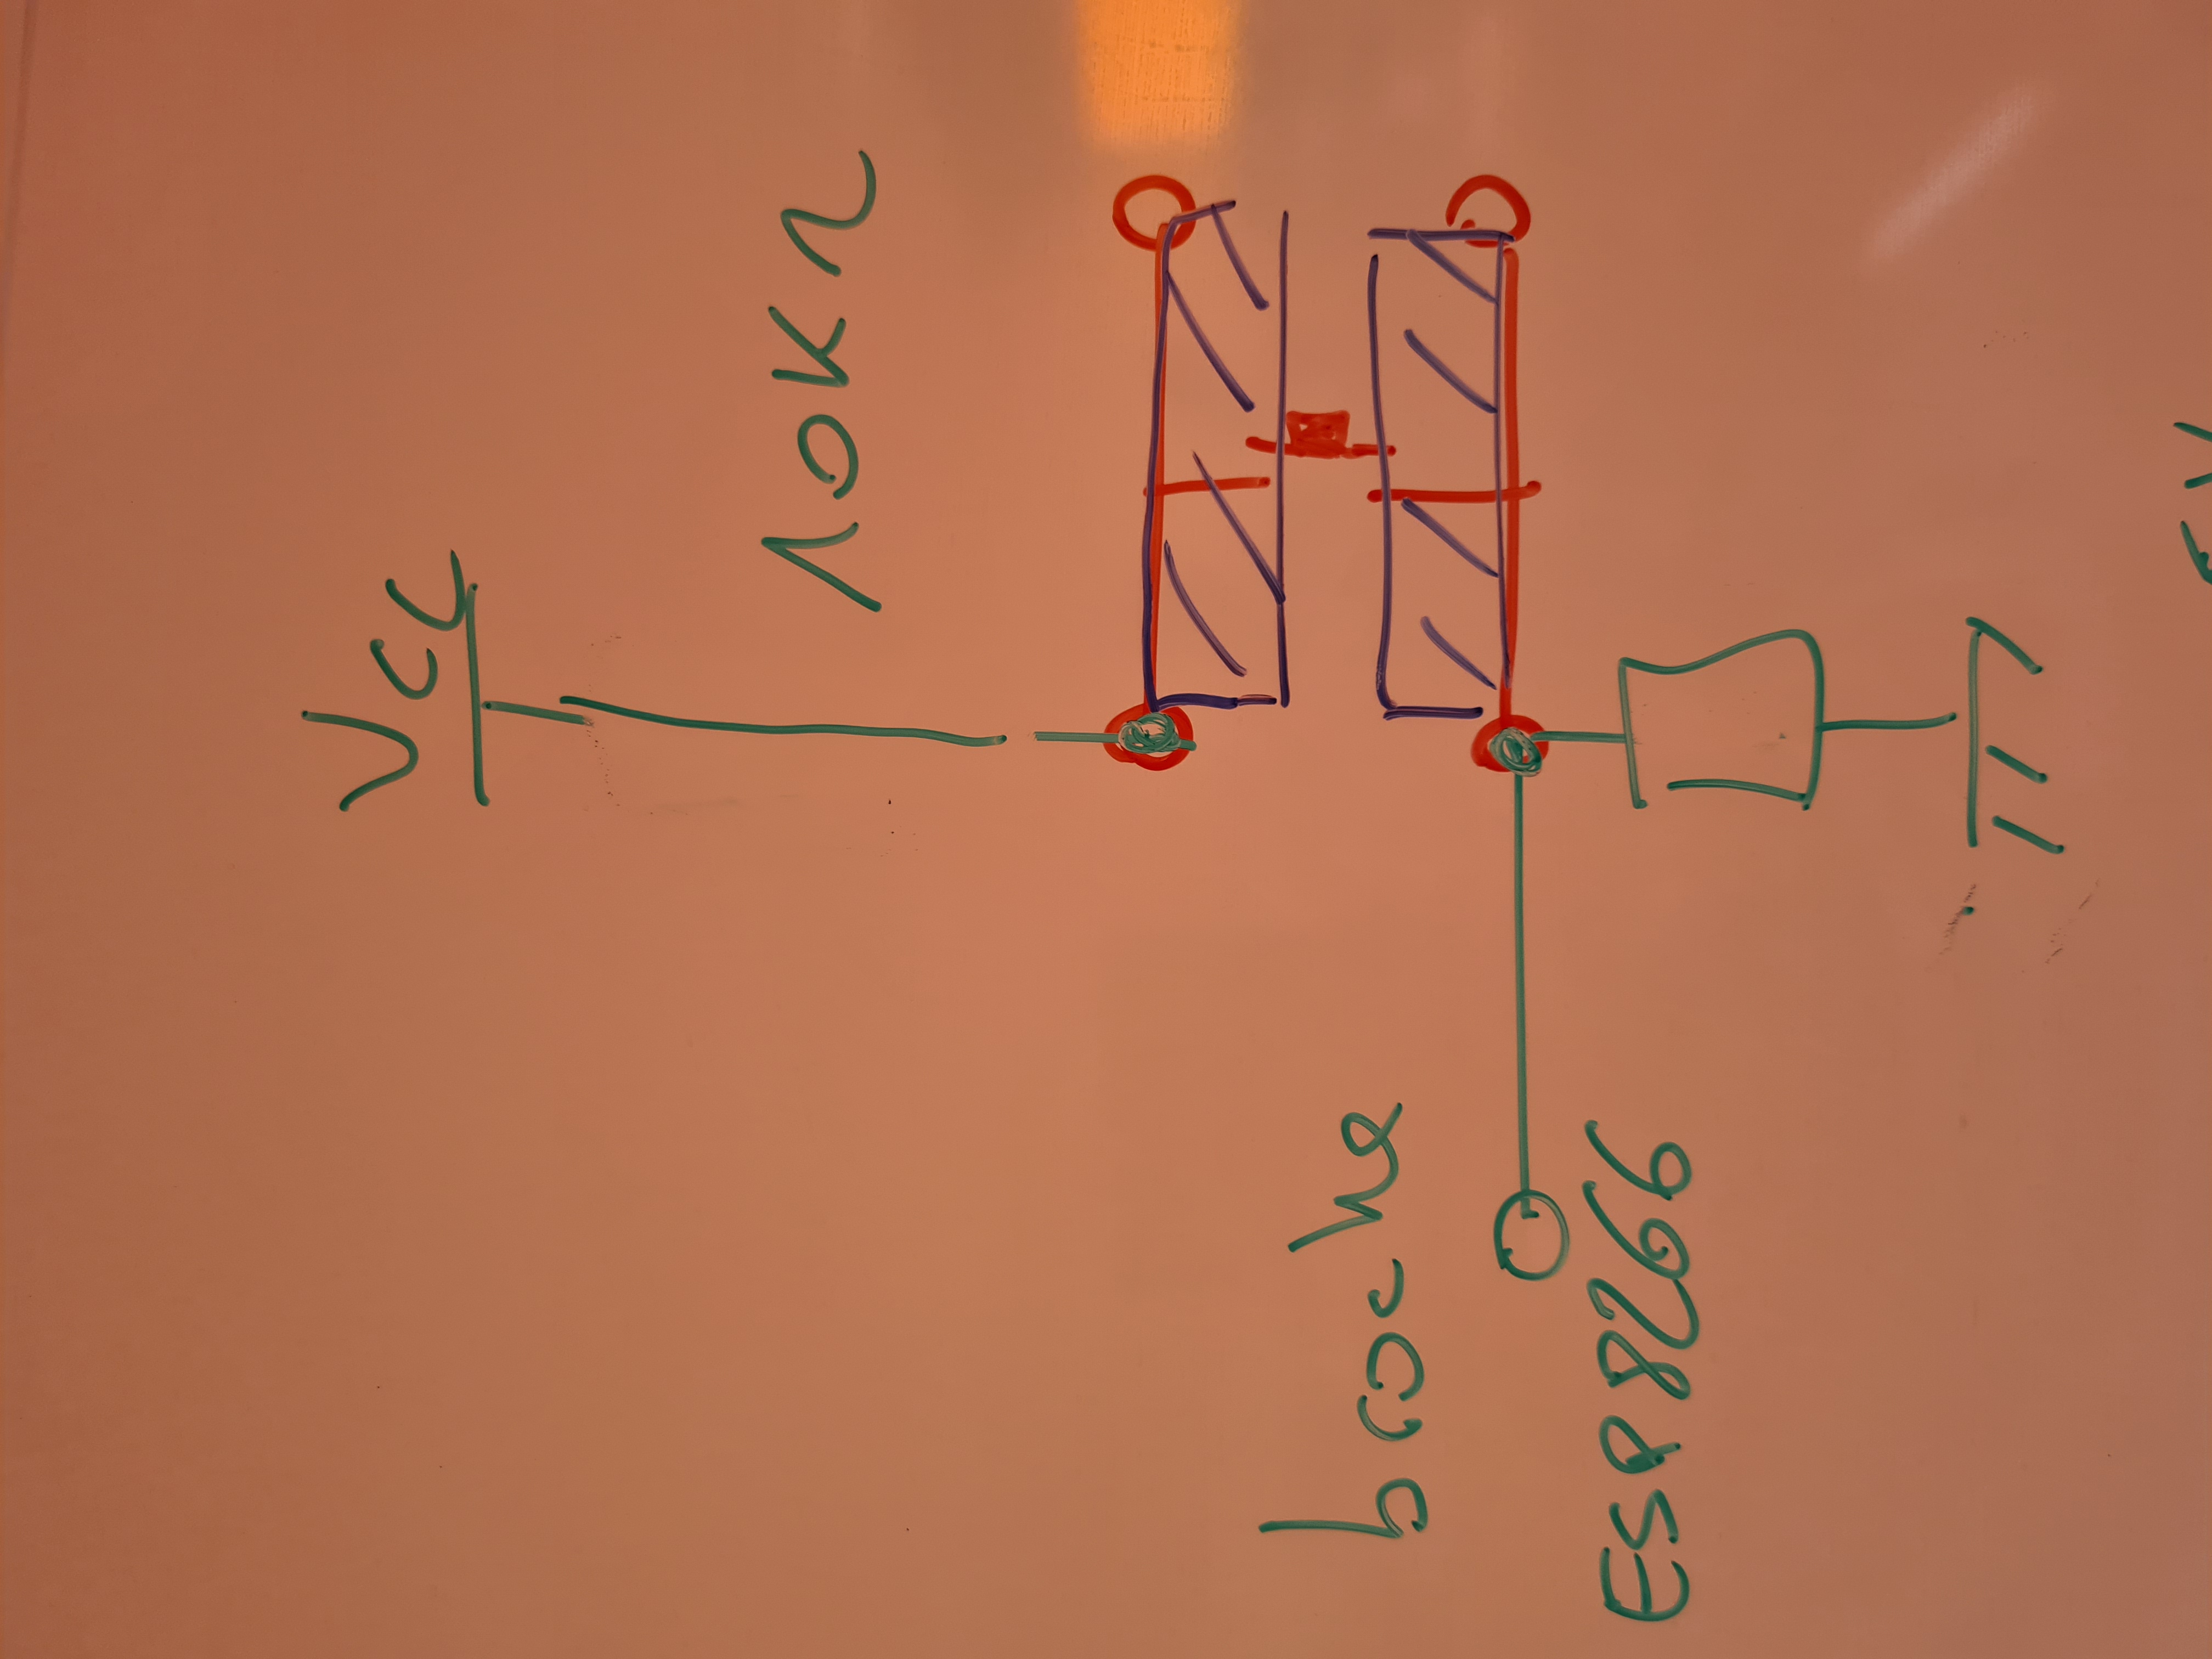 Vcc
10KΩ
broche
ESP8266